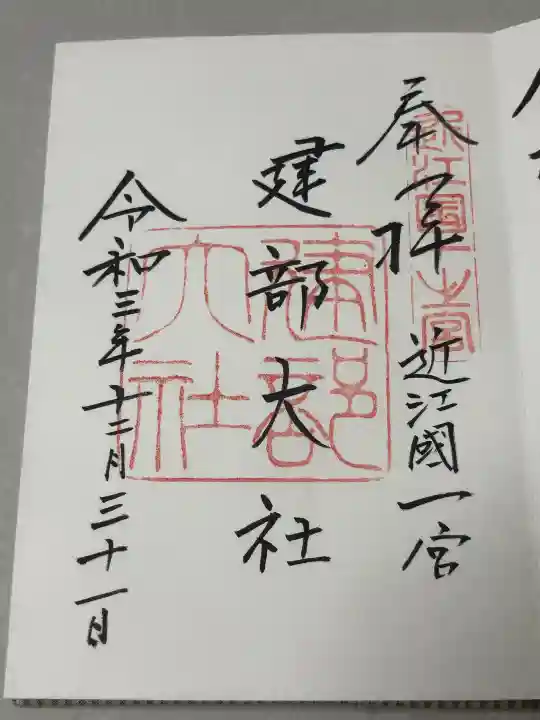 奉拝 近江國一宮
建部大社
令和三年十二月三十一日
近江國一之宮
建部大社